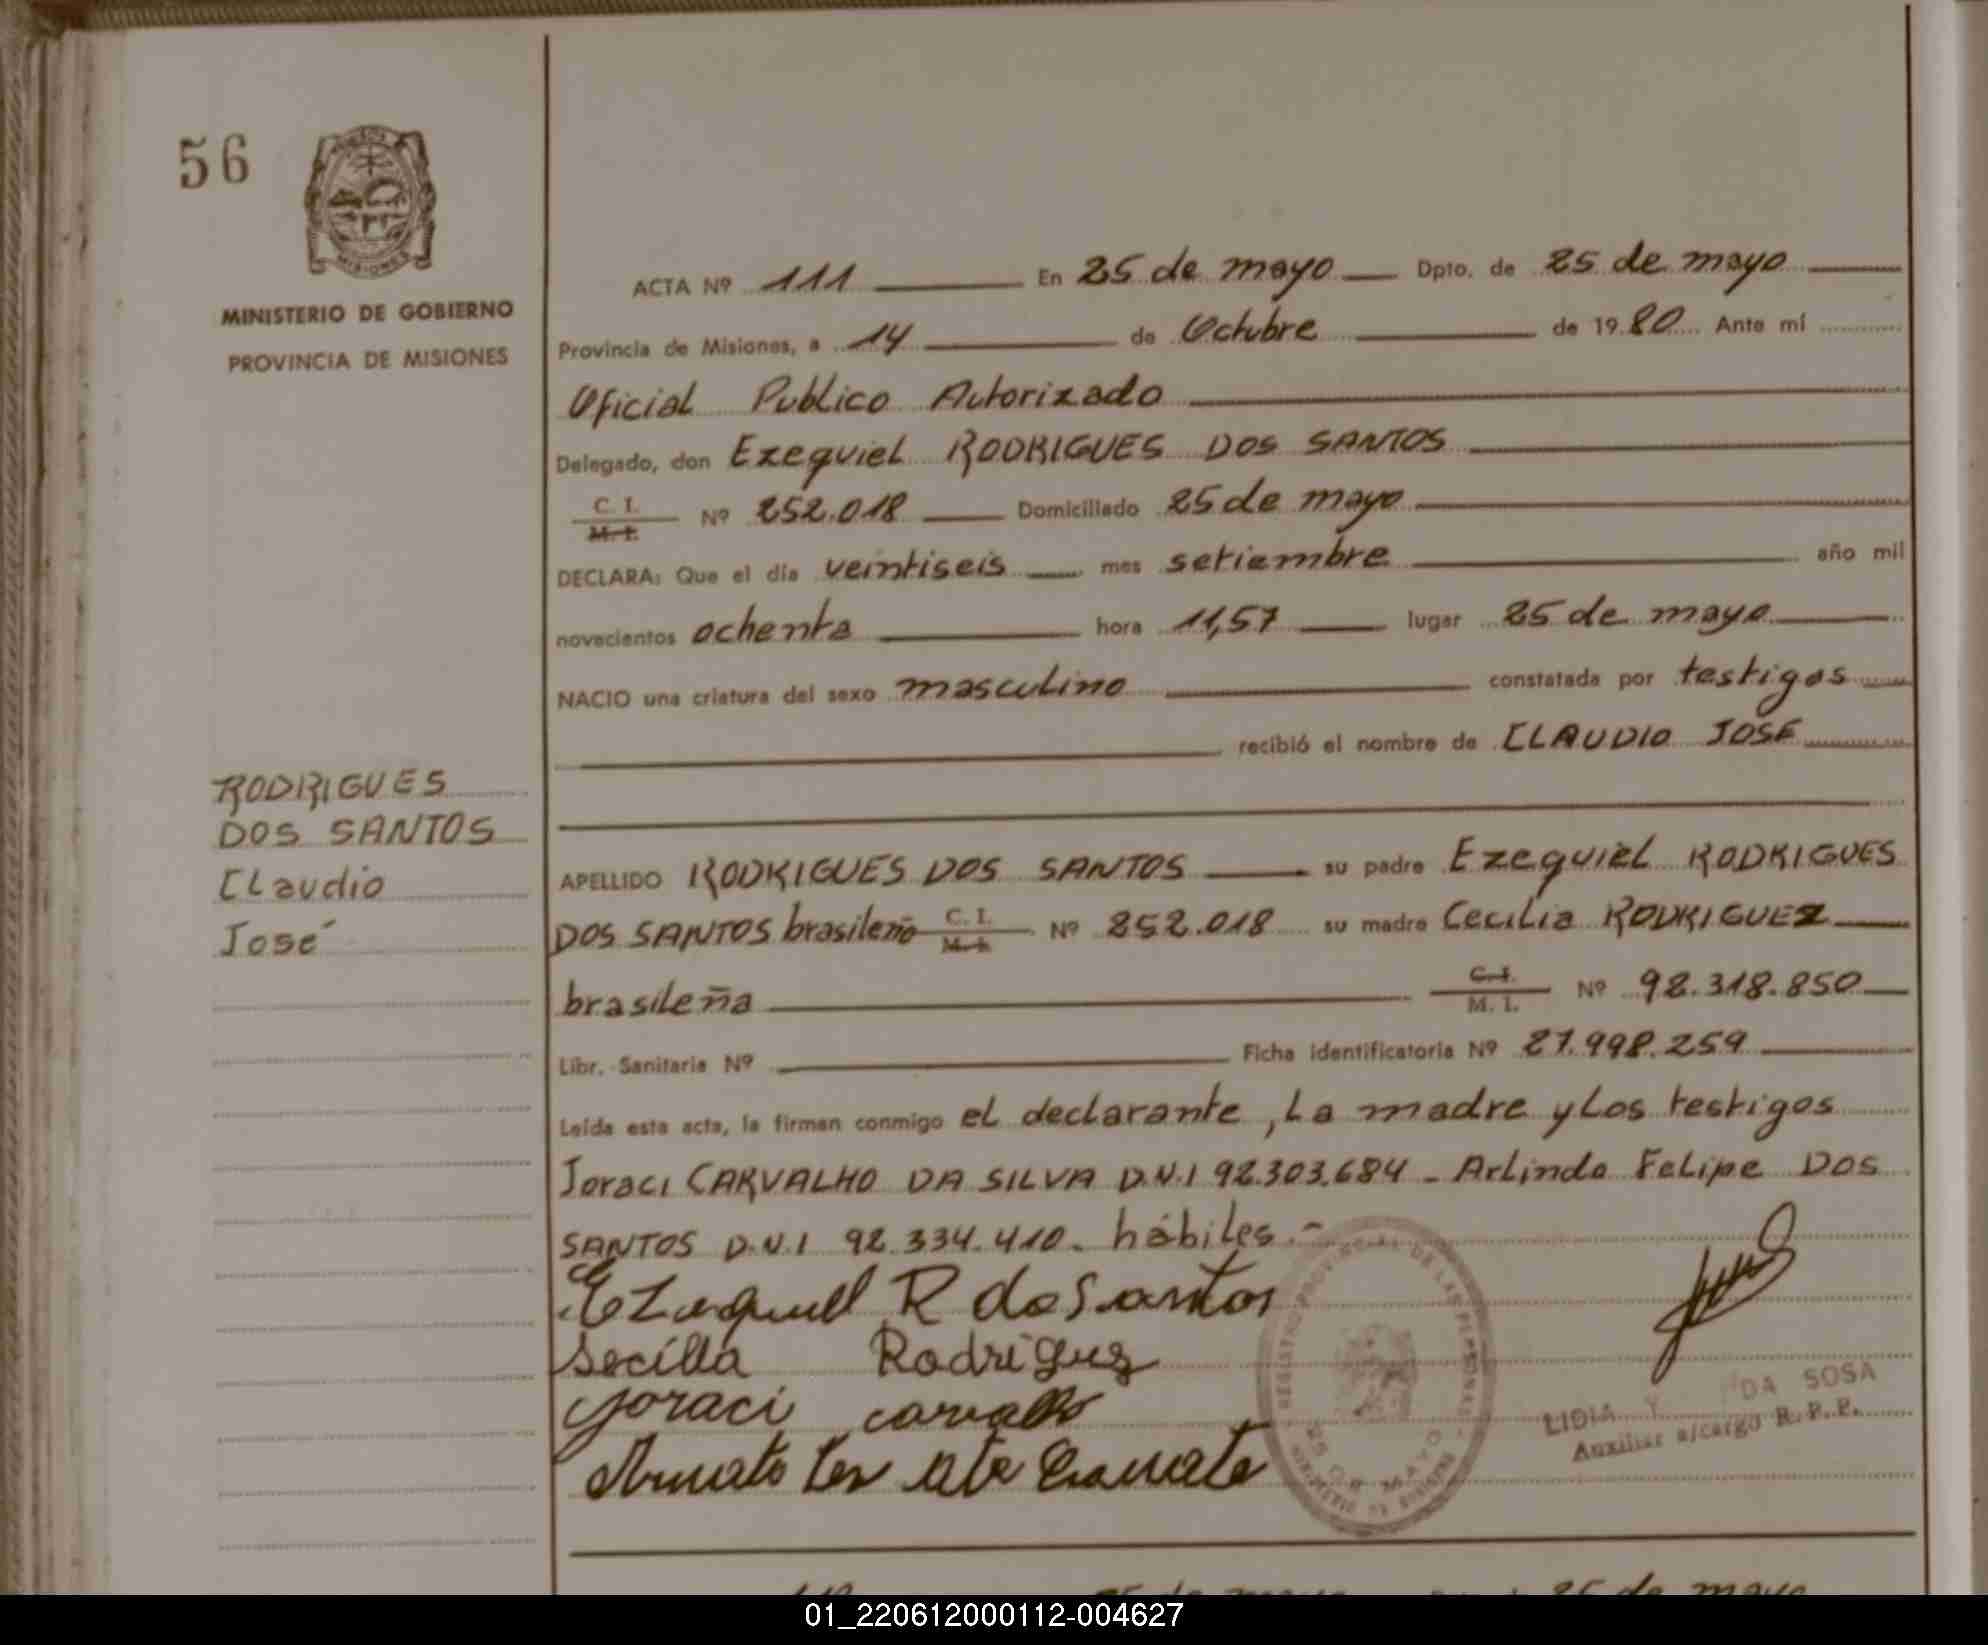 56
MISIONES
MINISTERIO DE GOBIERNO
PROVINCIA DE MISIONES
ACTA Nº 111 En 25 de mayo Dpto. de 25 de mayo
Provincia de Misiones, a 14 de Octubre de 1980 Ante mí
Oficial Publico Autorizado
Delegado, don Ezequiel RODRIGUES DOS SANTOS
C. I.
M. I.
Nº 252.018 Domiciliado 25 de mayo
DECLARA: Que el día veintiseis mes setiembre año mil
novecientos ochenta hora 11,57 lugar 25 de mayo
NACIO una criatura del sexo masculino constatada por testigos
recibió el nombre de CLAUDIO JOSE
RODRIGUES
DOS SANTOS
Claudio
José
APELLIDO RODRIGUES DOS SANTOS su padre Ezequiel RODRIGUES
DOS SANTOS brasileño C. I. M. I. Nº 252.018 su madre Cecilia RODRIGUEZ
brasileña C. I. M. I. Nº 92.318.850
Libr. Sanitaria Nº Ficha identificatoria Nº 27.998.259
Leída esta acta, la firman conmigo el declarante, la madre y los testigos
Joraci CARVALHO DA SILVA D.N.I 92.303.684 - Arlindo Felipe DOS
SANTOS D.N.I 92.334.410. hábiles.-
Ezequiel R dos Santos
Secilla Rodriguez
Joraci carvalho
REGISTRO PROVINCIAL DE LAS PERSONAS
25 DE MAYO
MINISTERIO DE GOBIERNO
LIDIA DA SOSA
Auxiliar a/cargo R. P. P.
25 de mayo 25 de mayo
01_220612000112-004627